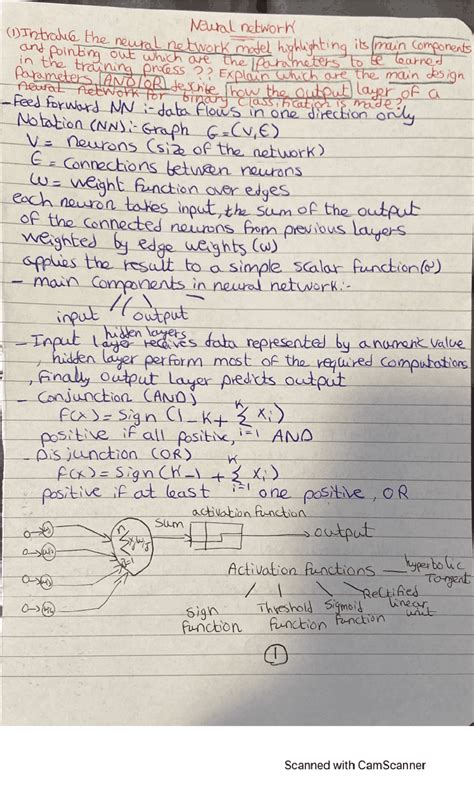 Neural network
(1) Introduce the neural network model highlighting its main components
and pointing out which are the parameters to be learned
in the training process ?? Explain which are the main design
Parameters AND/OR describe how the output layer of a
neural network for binary classification is made?
- Feed forward NN :- data flows in one direction only
Notation (NN) :- Graph G=(V,E)
V = neurons (size of the network)
E = connections between neurons
W = weight function over edges
each neuron takes input, the sum of the output
of the connected neurons from previous layers
weighted by edge weights (w)
applies the result to a simple scalar function (σ)
- main components in neural network :-
input output
hidden layers
- Input layer receives data represented by a numeric value
, hidden layer perform most of the required computations
, finally output layer predicts output
- Conjunction (AND)
f(x) = sign (1-K+ Σ xi)
positive if all positive, i=1 AND
- Disjunction (OR)
f(x) = sign (K-1 + Σ xi)
positive if at least i=1 one positive, OR
activation function
sum
output
Activation functions
hyperbolic
Tangent
Rectified
linear
unit
Sign
function
Threshold
function
Sigmoid
function
1
Scanned with CamScanner